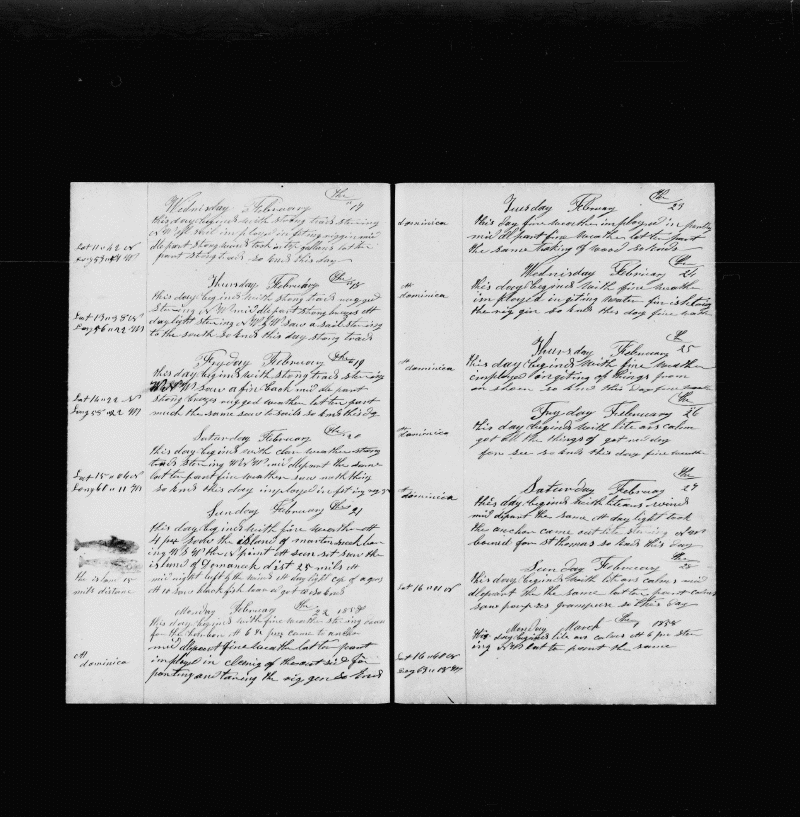 Wednisday February the 17
this day begines with strong traids stearing
W by S imployed in fiting riggin mid
dle part strong winds took in by gallens latter
part strong traids so ends this day
Lat 11 = 42 N
Long 53 = 44 W
Thursday February the 18
this day begines with strong traids ruged
stearing W middle part strong breezes at
day light stearing W by W saw a sail stearing
to the south so ends this day strong traids
Lat 13 = 58 N
Long 56 = 22 W
Fryday February the 19
this day begines with strong traids stearing
W saw a fin back middle part
strong breezes rugged weather latter part
much the same saw to sails so ends this day
Lat 14 = 24 N
Long 58 = 22 W
Saturday February the 20
this day begines with clear weather strong
traids stearing W by W middle part the same
latter part fine weather saw nothing
so ends this day imployed in fiting riggin
Lat 15 = 04 N
Long 60 = 11 W
Sunday February the 21
this day begines with fine weather at
4 pm rose the island of martineach bear
ing W by W the point at sun set saw the
island of Domaneck dist 25 mils at
mid night at day light
at 10 saw blackfish lowered got
the island 15
mils distance
Monday February the 22 1858
this day begines with fine weather stearing down
for the harbor at 6 pm came to anchor
middle part fine weather latter part
imployed in clening of the side for
painting and taring the riggen so ends
At
dominica
Tuesday February the 23
this day fine weather imployed in painting
middle part fine weather latter part
the same taking of wood so ends
dominica
Wednisday February the 24
this day begines with fine weather
imployed in giting water finishing
the riggin so ends this day fine weather
At
dominica
Thursday February the 25
this day begines with fine weather
employed in giting of things from
on shore so ends this day fine weather
At
dominica
Fryday February the 26
this day begines with lite ars calm
got all the things of got ready
for sea so ends this day fine weather
At
dominica
Saturday February the 27
this day begines with lite ars winds
middle part the same at day light took
the anchor came out lite stearing
bound for st thomas so ends this day
At
dominica
Sunday February the 28
this day begines with lite ars calms mid
dle part the same latter part calms
saw porpoises grampuse so this day
Lat 16 = 01 N
Monday March the 1 1858
this day begines lite ars calms at 6 pm stear
ing latter part the same
Lat 16 = 40 N
Long 63 = 18 W